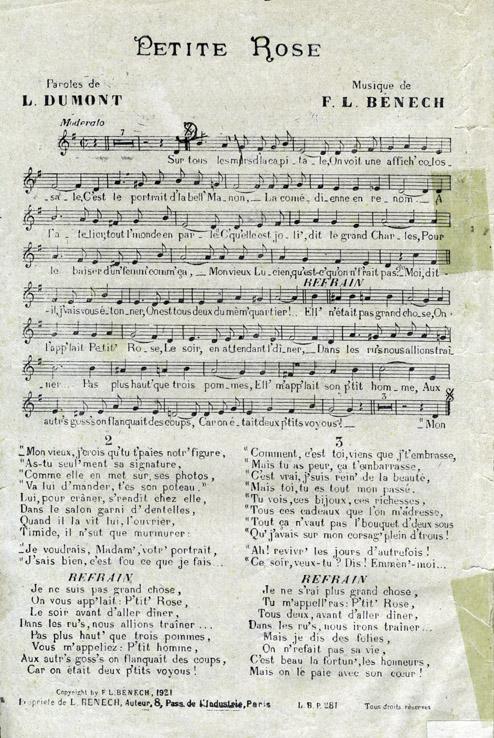 PETITE ROSE
Paroles de
L. DUMONT
Musique de
F. L. BÉNECH
Moderato
7
Sur tous les murs d'la ca pi _ ta _ le, On voit une affich' co los _
_ sa _ le, C'est le portrait d'la bell' Ma _ non, _ La comé _ dienne en re _ nom _ A
l'a _ telier, tout l'monde en par _ le C'qu'elle est jo _ li', dit le grand Char _ les, Pour
le baiser d'un' femm' comm' ça, _ Mon vieux Lu _ cien, qu'est-c' qu'on n'f'rait pas? Moi, dit _
REFRAIN
_ il, j'vais vous é _ ton _ ner, On est tous deux du mêm' quartier!.. Ell' n'était pas grand cho _ se, On
l'app'lait P'tit' Ro _ se, Le soir, en attendant l'dî _ ner, _ Dans les ru's nous allions traî _
_ ner... Pas plus haut' que trois pom _ mes, Ell' m'app'lait son p'tit hom _ me, Aux
3
autr's goss's on flanquait des coups, Car on é _ tait deux p'tits voyous! _ "Mon
2
"Mon vieux, j'crois qu'tu t'paies notr' figure,
"As-tu seul'ment sa signature,
"Comme elle en met sur ses photos,
"Va lui d'mander, t'es son poteau."
Lui, pour crâner, s'rendit chez elle,
Dans le salon garni d'dentelles,
Quand il la vit lui, l'ouvrier,
Timide, il n'sut que murmurer:
"Je voudrais, Madam', votr' portrait,
"J'sais bien, c'est fou ce que je fais...
REFRAIN
Je ne suis pas grand chose,
On vous app'lait: P'tit' Rose,
Le soir avant d'aller dîner,
Dans les ru's, nous allions traîner...
Pas plus haut' que trois pommes,
Vous m'appeliez: P'tit homme,
Aux autr's goss's on flanquait des coups,
Car on était deux p'tits voyous!
3
"Comment, c'est toi, viens que j't'embrasse,
"Mais tu as peur, ça t'embarrasse,
"C'est vrai, j'suis rein' de la beauté,
"Mais toi, tu es tout mon passé.
"Tu vois, ces bijoux, ces richesses,
"Tous ces cadeaux que l'on m'adresse,
"Tout ça n'vaut pas l'bouquet d'deux sous
"Qu'j'avais sur mon corsag' plein d'trous!
"Ah! revivr' les jours d'autrefois!
"Ce soir, veux-tu? Dis! Emmèn'-moi...
REFRAIN
Je ne s'rai plus grand chose,
Tu m'appell'ras: P'tit' Rose,
Tous deux, avant d'aller dîner,
Dans les ru's, nous irons traîner...
Mais je dis des folies,
On n'refait pas sa vie,
C'est beau la fortun', les honneurs,
Mais on le paie avec son cœur!
Copyright by F. L. BENECH, 1921
Propriété de L. BENECH, Auteur, 8, Pass. de l'Industrie, Paris
L. B. P. 281
Tous droits réservés